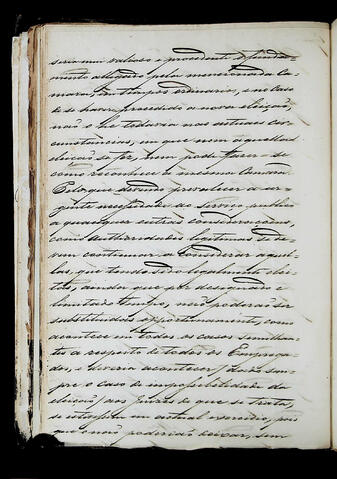 seria mui valioso e procedente o funda-
mento allegado pela mencionada Ca-
mara, em tempos ordinarios, e no caso
de se haver procedido a nova eleição,
não o he todavia nas actuaes cir-
cunstancias, em que nem aquella
eleição se fez, nem pode fazer-se
como reconhece a mesma Camara.
Pelo que devendo prevalecer a ur-
gente necessidade do Serviço publico
a quaesquer outras considerações,
como Authoridades legitimas se de-
vem continuar a considerar aquel-
las, que tendo sido legalmente elei-
tas, ainda que por designado e
limitado tempo, não poderão ser
substituidas opportunamente, como
acontece em todos os casos semelhan-
tes a respeito de todos os Emprega-
dos, e deveria acontecer (dado sem-
pre o caso de impossibilidade de
eleição) aos Juizes de que se trata,
se estivessem em actual exercicio, pois
que o não poderião deixar, sem